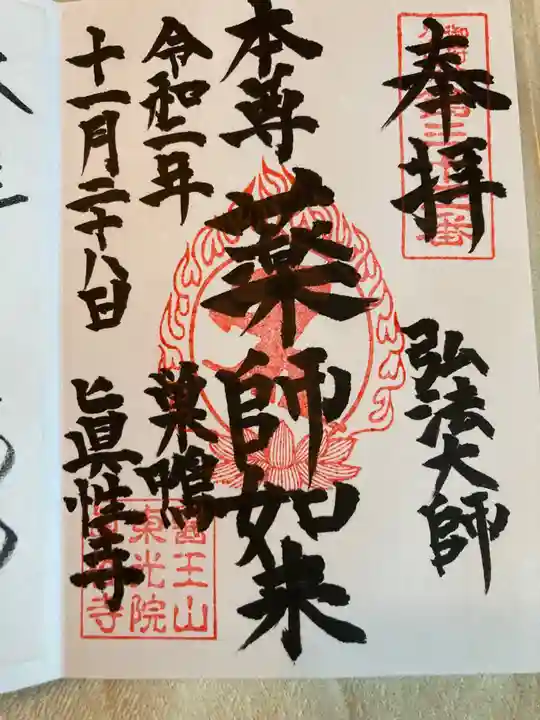 奉拝
弘法大師
本尊 薬師如来
令和二年 巣鴨
十一月二十八日 眞性寺
医王山
東光院